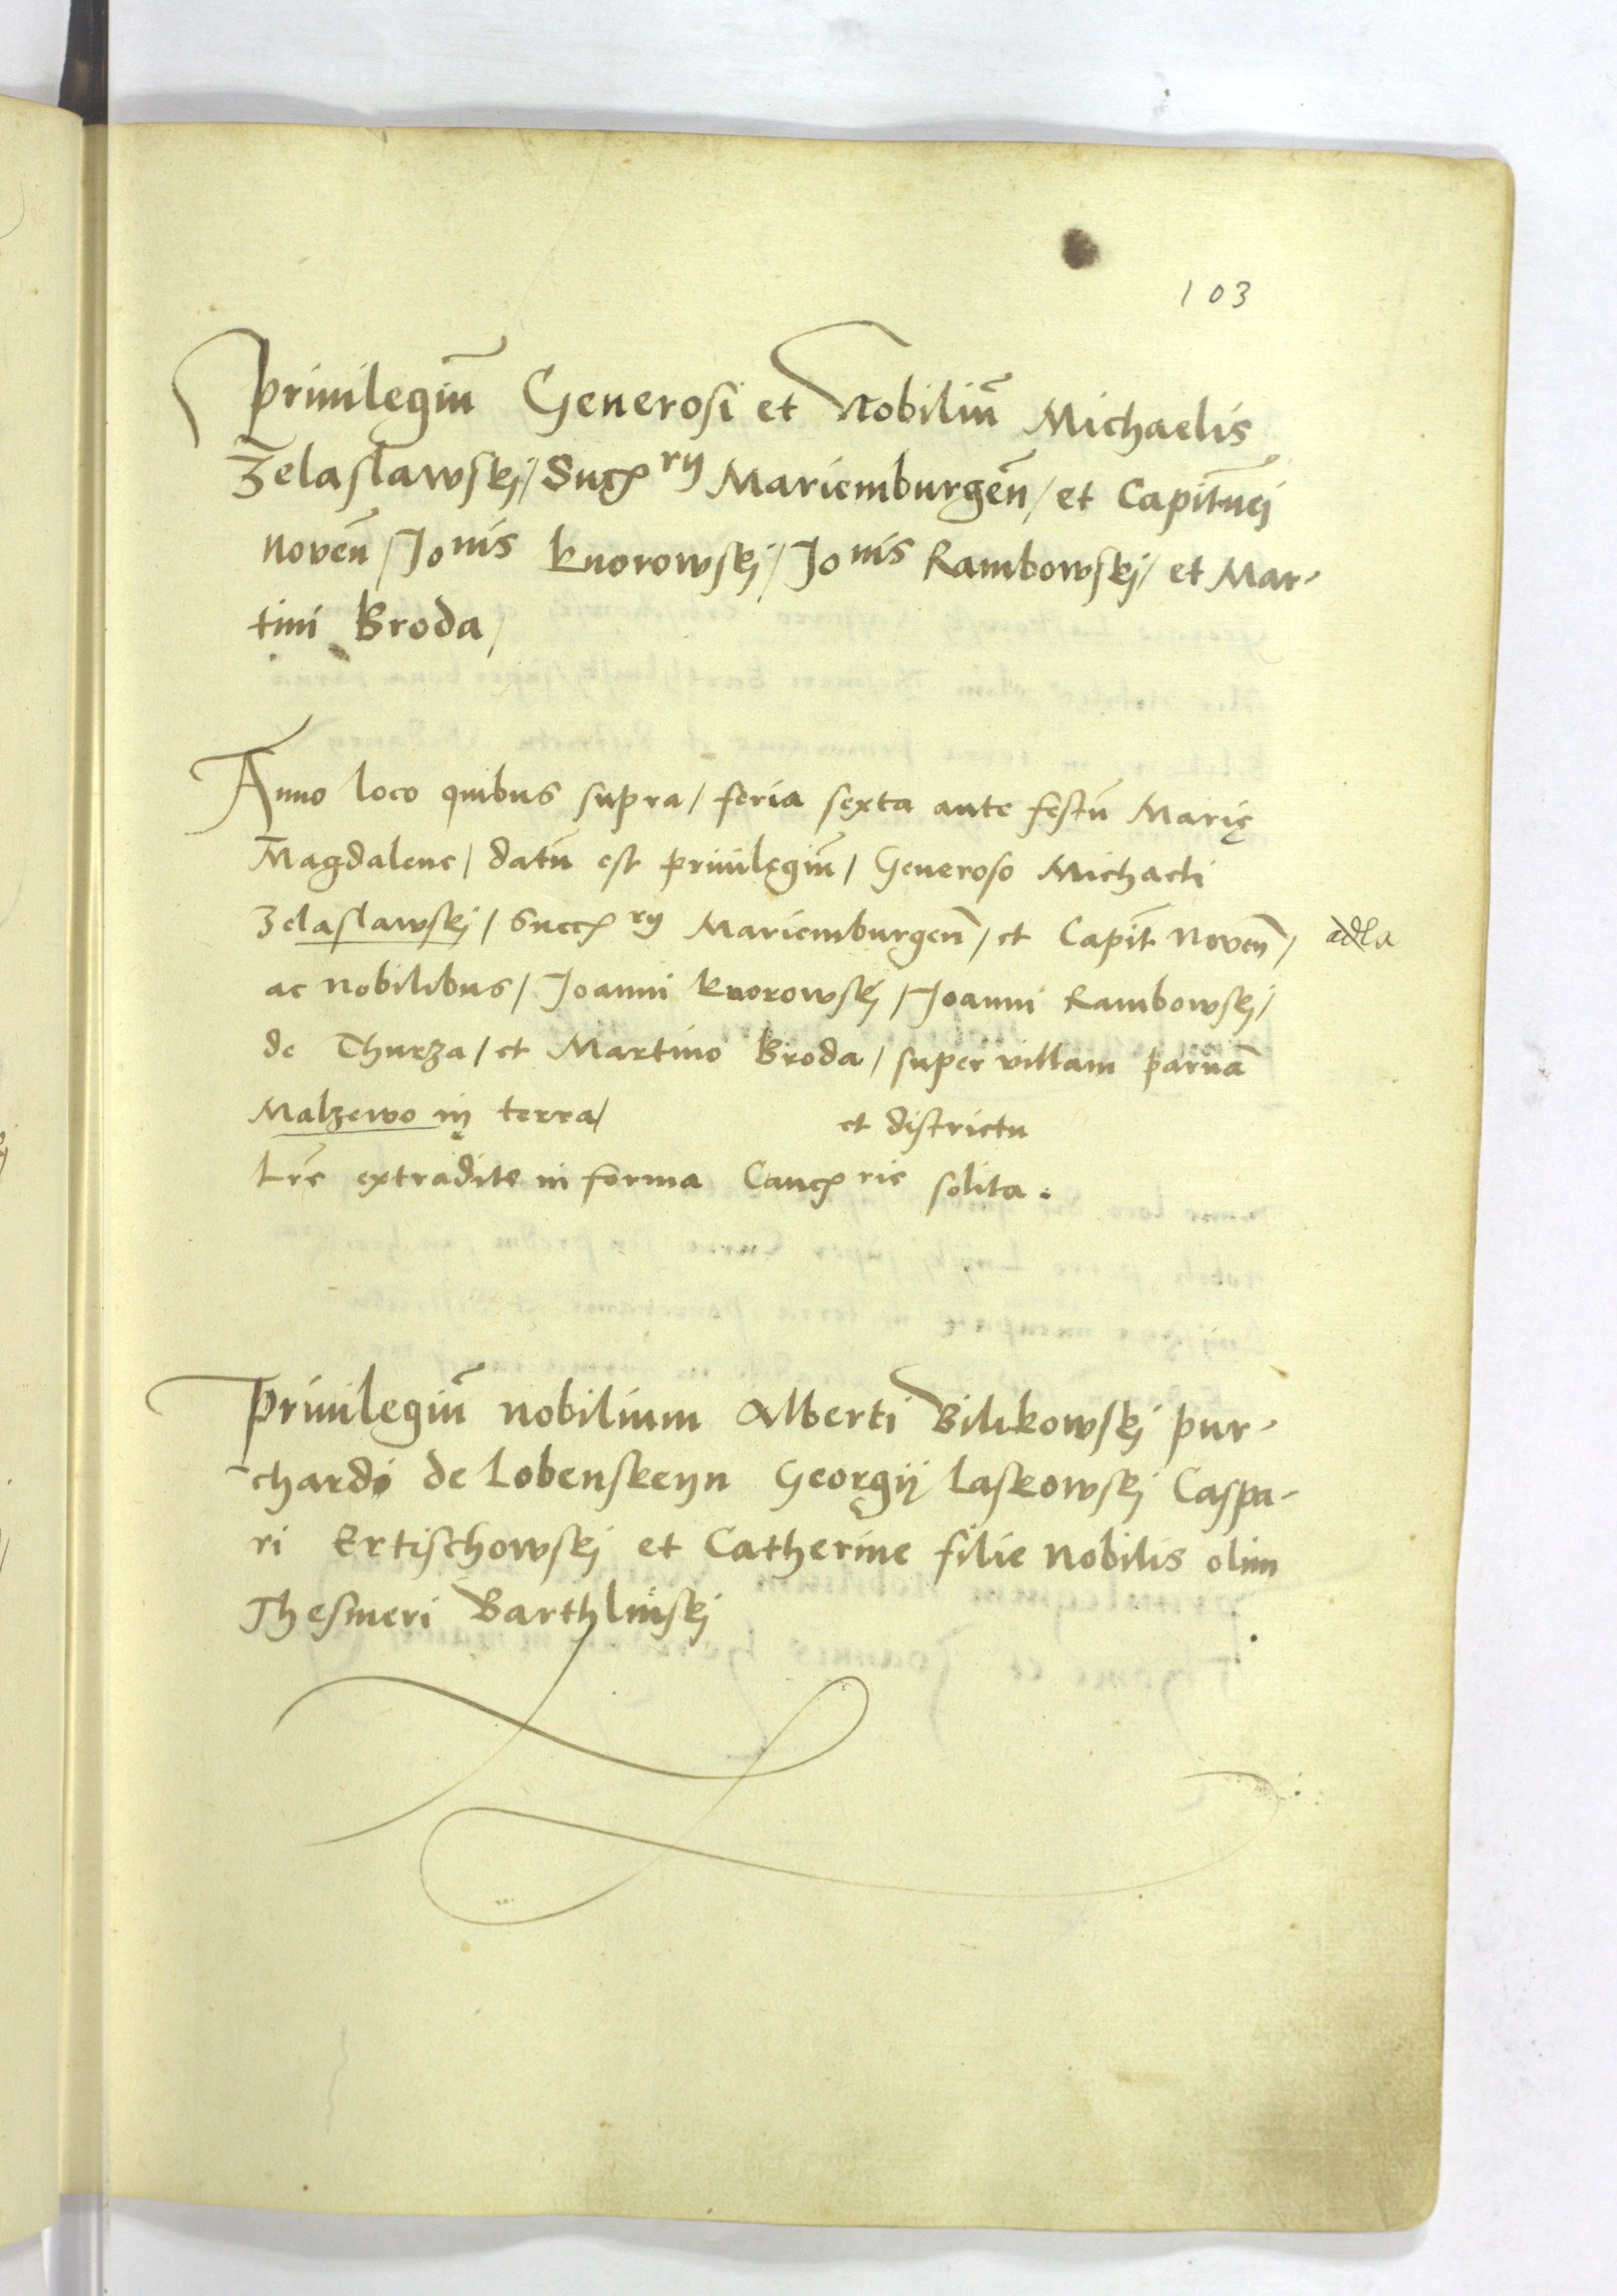 103
Privilegiu᷈ Generosi et Nobiliu᷈ Michaelis
Zelaslawskj / Succ ry Mariemburgen̄ / et Capit̄nej
noven̄ / Jo nis knorowskj / Jo nis Rambowskj / et Mar-
tini Broda /
Anno loco quibus supra / feria sexta ante festū Marię
Magdalene / datū est privilęgiū / Generoso Michaeli
Zelaslawskj / Succ ry Mariemburgen̄ / et Capit̄ Noven̄ /
adla
ac Nobilibus / Joanni knorowskj / Joanni Rambowskj /
de Thurza / et Martino Broda / super villam parvā
Malzewo in terra / et districtu
Lr̄e extradite in forma Canc rie solita .
Privilegiū nobilium Alberti Bilikowskj pur-
chardi de Lobenskeyn Georgij Laskowskj Caspa-
ri Ertischowskj et Catherine filie Nobilis olim
Thesmeri Barthlinskj